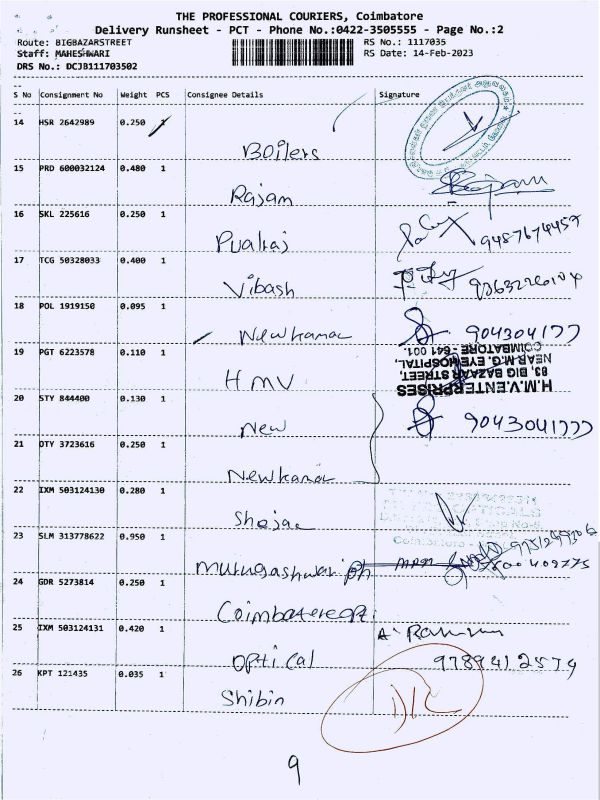 THE PROFESSIONAL COURIERS, Coimbatore
Delivery Runsheet - PCT - Phone No.:0422-3505555 - Page No.:2
Route: BIGBAZARSTREET RS No.: 1117035
Staff: MAHESHWARI RS Date: 14-Feb-2023
DRS No.: DCJB111703502
S No Consignment No Weight PCS Consignee Details Signature
14 HSR 2642989 0.250 1
Boilers
15 PRD 600032124 0.480 1
Rajam
16 SKL 225616 0.250 1
9487674457
17 TCG 50328033 0.400 1
Vibash
18 POL 1919150 0.095 1
Newkamal 904304177
19 PGT 6223578 0.110 1
H.M.V.ENTERPRISES
83, BIG BAZAAR STREET,
NEAR M.G. EYE HOSPITAL,
COIMBATORE - 641 001.
HMV
20 STY 844400 0.130 1
New 9043041777
21 DTY 3723616 0.250 1
Newkamal
22 IXM 503124130 0.280 1
23 SLM 313778622 0.950 1
Murugashwari ph
24 GDR 5273814 0.250 1
25 IXM 503124131 0.420 1
Optical 9789412574
26 KPT 121435 0.035 1
Shibin
9